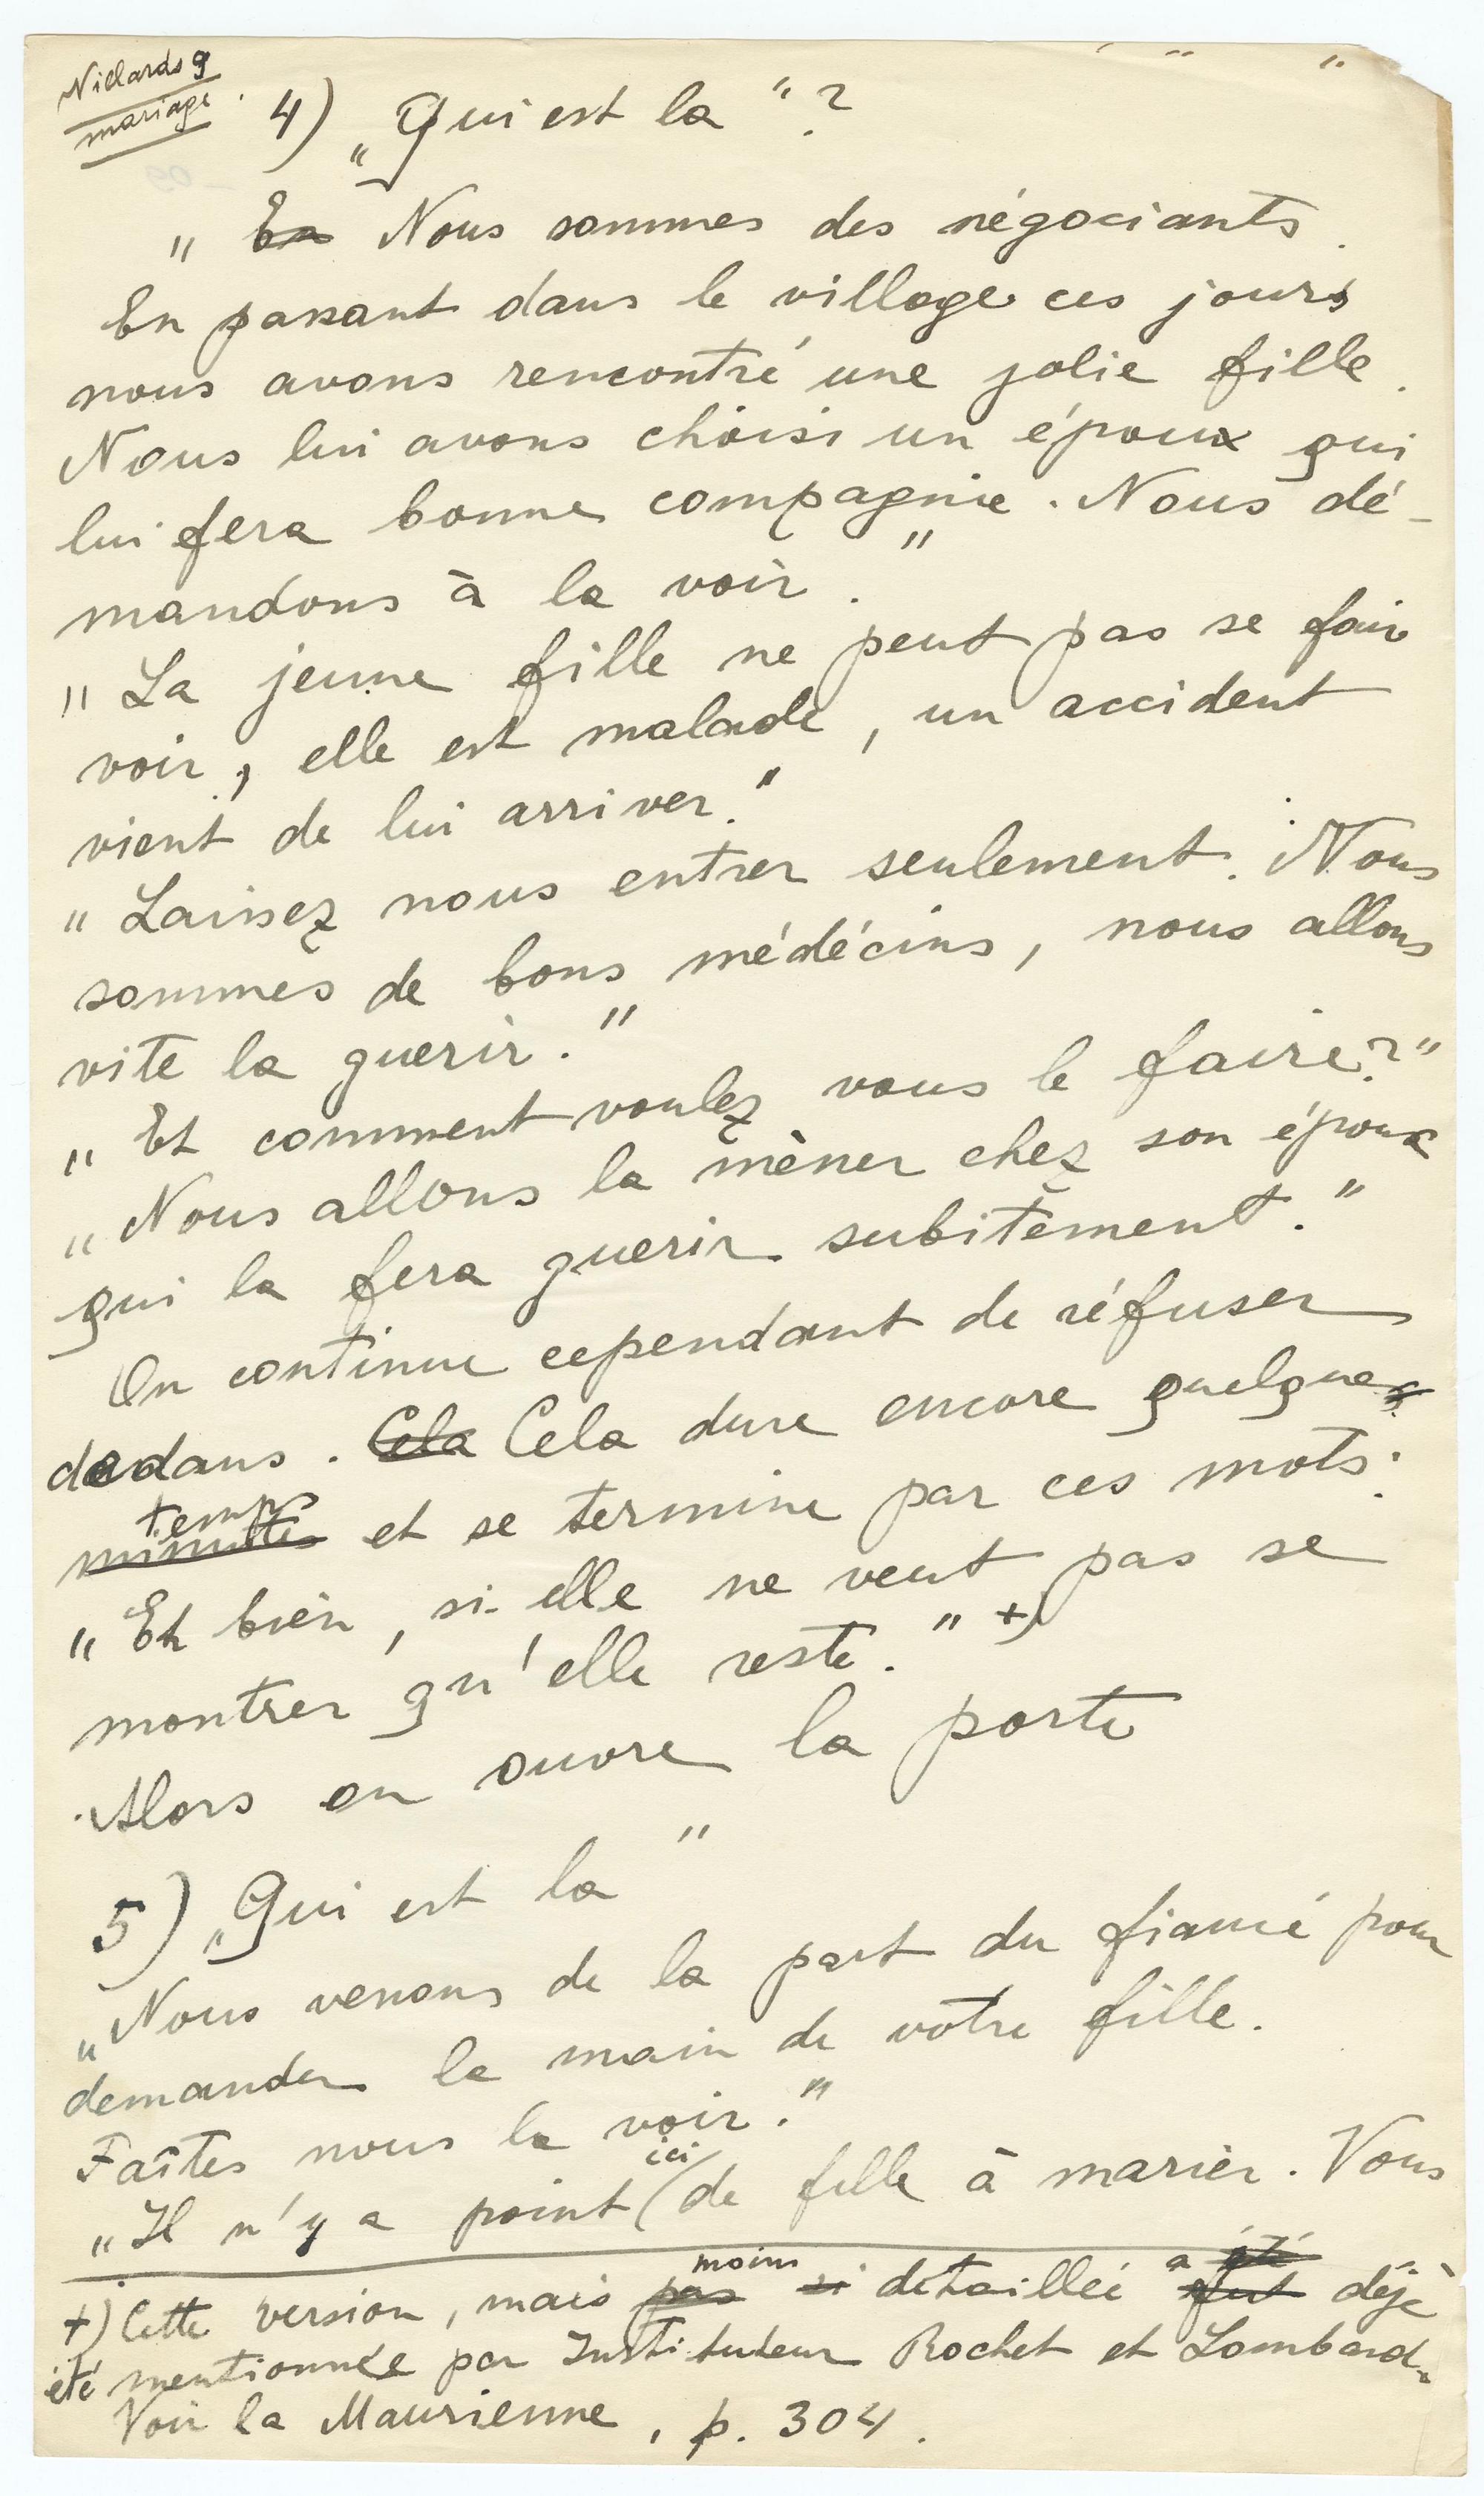 Villards 9
mariage.
4) „Qui est la "?
" En Nous sommes des négociants.
En passant dans le village ces jours
nous avons rencontré une jolie fille.
Nous lui avons choisi un époux qui
lui fera bonne compagnie. Nous dé-
mandons à la voir."
" La jeune fille ne peut pas se fair
voir, elle est malade, un accident
vient de lui arriver."
" Laissez nous entrer seulement. Nous
sommes de bons médécins, nous allons
vite la guerir."
" Et comment voulez vous le faire?"
" Nous allons la mèner chez son époux
qui la fera guerir subitement."
On continue cependant de réfuser
dedans. Cela Cela dure encore quelque
temps
minutes et se termine par ces mots:
" Eh bien, si elle ne veut pas se
montrer qu'elle reste." +)
Alors on ouvre la porte
5) „Qui est la "
„Nous venons de la part du fiancé pour
demander la main de votre fille.
Faîtes nous la voir."
ici
" Il n'y a point ( de fille à marier. Vous
moins a été
+) Cette version, mais pas si détaillée fut déjà
été mentionnée par Instituteur Rochet et Lombard.
Voir la Maurienne, p. 304.